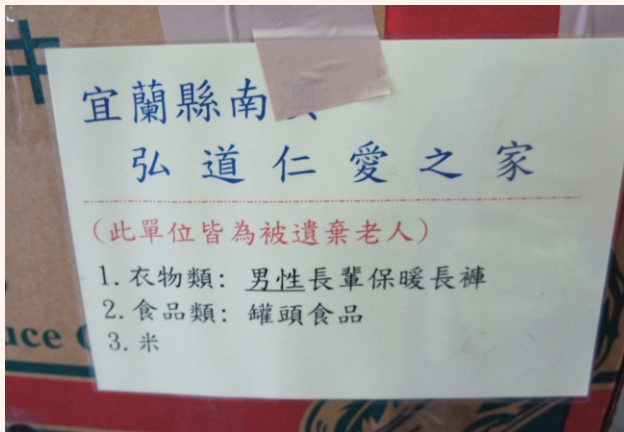 宜蘭縣南
弘道仁愛之家
(此單位皆為被遺棄老人)
1.衣物類：男性長輩保暖長褲
2.食品類：罐頭食品
3.米
uce